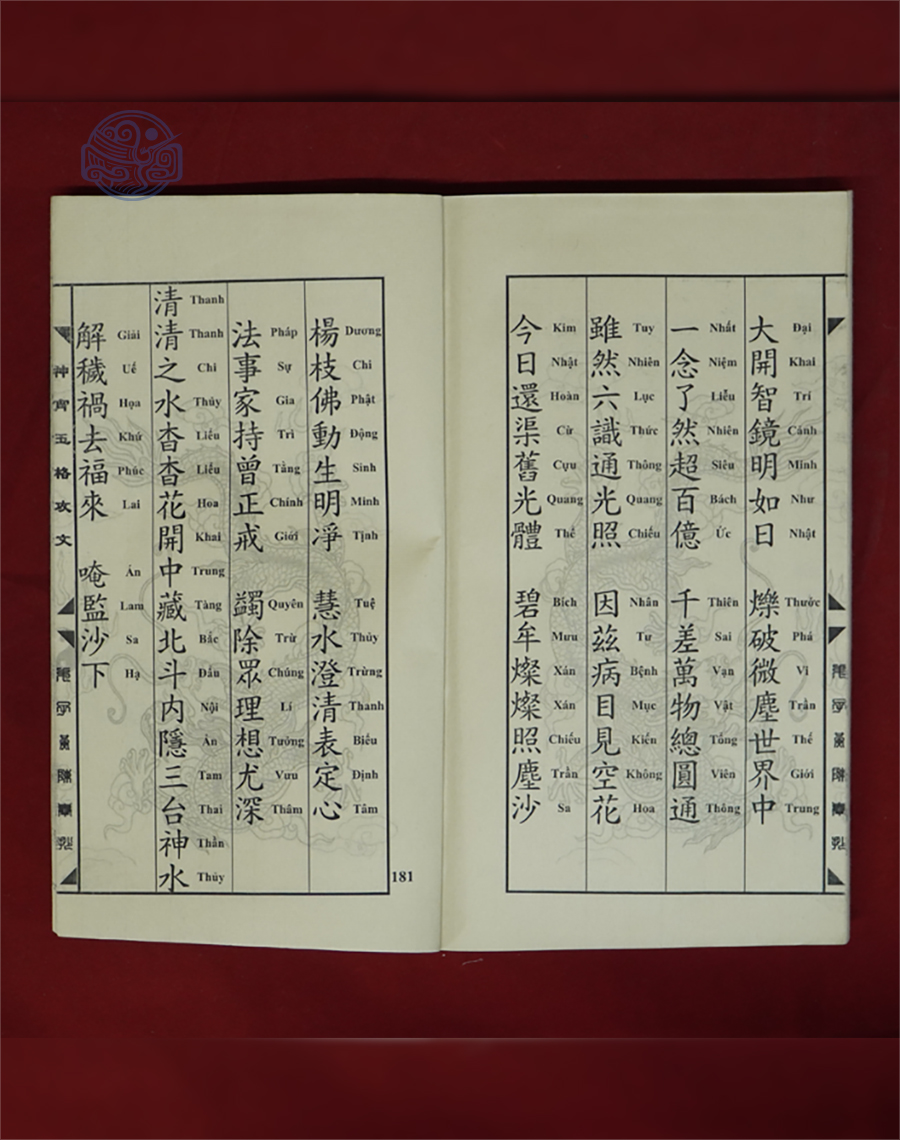 大開智鏡明如日 爍破微塵世界中
Đại Khai Trí Cảnh Minh Như Nhật Thước Phá Vi Trần Thế Giới Trung
一念了然超百億 千差萬物總圓通
Nhất Niệm Liễu Nhiên Siêu Bách Ức Thiên Sai Vạn Vật Tổng Viên Thông
雖然六識通光照 因茲病目見空花
Tuy Nhiên Lục Thức Thông Quang Chiếu Nhân Tư Bệnh Mục Kiến Không Hoa
今日還渠舊光體 碧牟燦燦照塵沙
Kim Nhật Hoàn Cừ Cựu Quang Thể Bích Mưu Xán Xán Chiếu Trần Sa
楊枝佛動生明淨 慧水澄清表定心
Dương Chi Phật Động Sinh Minh Tịnh Tuệ Thủy Trừng Thanh Biểu Định Tâm
法事家持曾正戒 蠲除眾理想尤深
Pháp Sự Gia Trì Tằng Chính Giới Quyên Trừ Chúng Lí Tưởng Vưu Thâm
清清之水杳杳花開中藏北斗内隱三台神水
Thanh Thanh Chi Thủy Liểu Liểu Hoa Khai Trung Tàng Bắc Đẩu Nội Ẩn Tam Thai Thần Thủy
解穢禍去福來 唵監沙下
Giải Uế Họa Khứ Phúc Lai Án Lam Sa Hạ
神霄玉格攻文
181